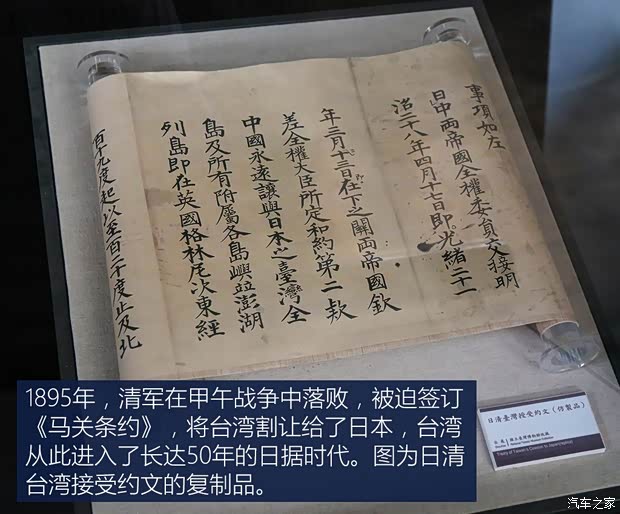 事項如左
日中兩帝國全權委員交接明
治二十八年四月十七日即光緒二十一
年三月二十三日在下之關兩帝國欽
差全權大臣所定和約第二款
中國永遠讓與日本之臺灣全
島及所有附屬各島嶼竝澎湖
列島即在英國格林尼次東經
百十九度起以至百二十度止及北
日清臺灣授受約文（仿製品）
Treaty of Taiwan's Cession to Japan(replica)
1895年，清军在甲午战争中落败，被迫签订
《马关条约》，将台湾割让给了日本，台湾
从此进入了长达50年的日据时代。图为日清
台湾接受约文的复制品。
汽车之家